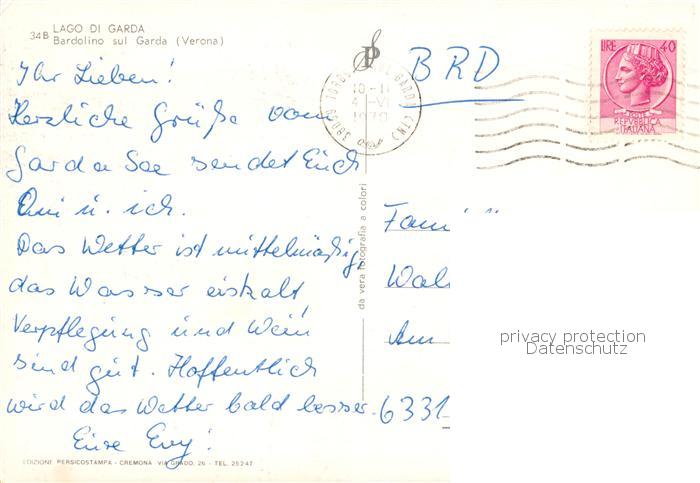 34B LAGO DI GARDA
Bardolino sul Garda (Verona)
Ihr Lieben!
Herzliche Grüße vom
Garda See sendet Euch
Omi u. ich.
Das Wetter ist mittelmäßig,
das Wasser eiskalt
Verpflegung und Wein
sind gut. Hoffentlich
wird das Wetter bald besser.
Eure Evy!
EDIZIONE PERSICOSTAMPA - CREMONA VIA GRADO, 26 - TEL. 25247
da vera fotografia a colori
BRD
LIRE 40
POSTE
REPVBBLICA
ITALIANA
10-11
4-VI
1970
38069
Fam
Wal
Am
6331
privacy protection
Datenschutz